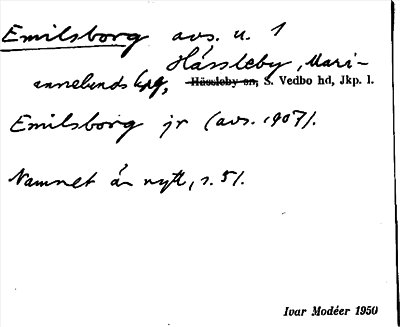 Emilsborg avs. u. 1
Hässleby, Mari-
annelunds kpg, Hässleby sn, S. Vedbo hd, Jkp. l.
Emilsborg jr (avs. 1907).
Namnet är nytt, s. 51.
Ivar Modéer 1950